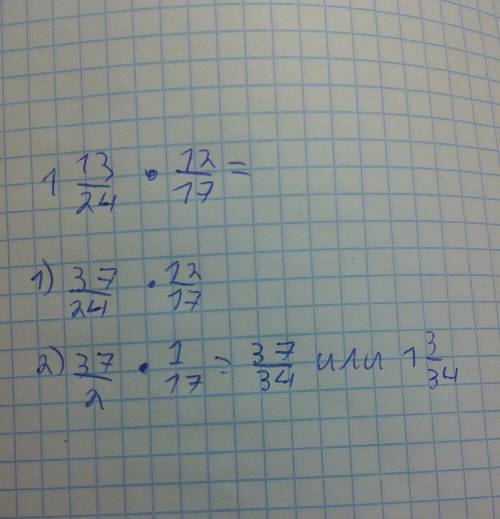 1 13/24 · 12/17 =
1) 37/24 · 12/17
2) 37/2 · 1/17 = 37/34 или 1 3/34